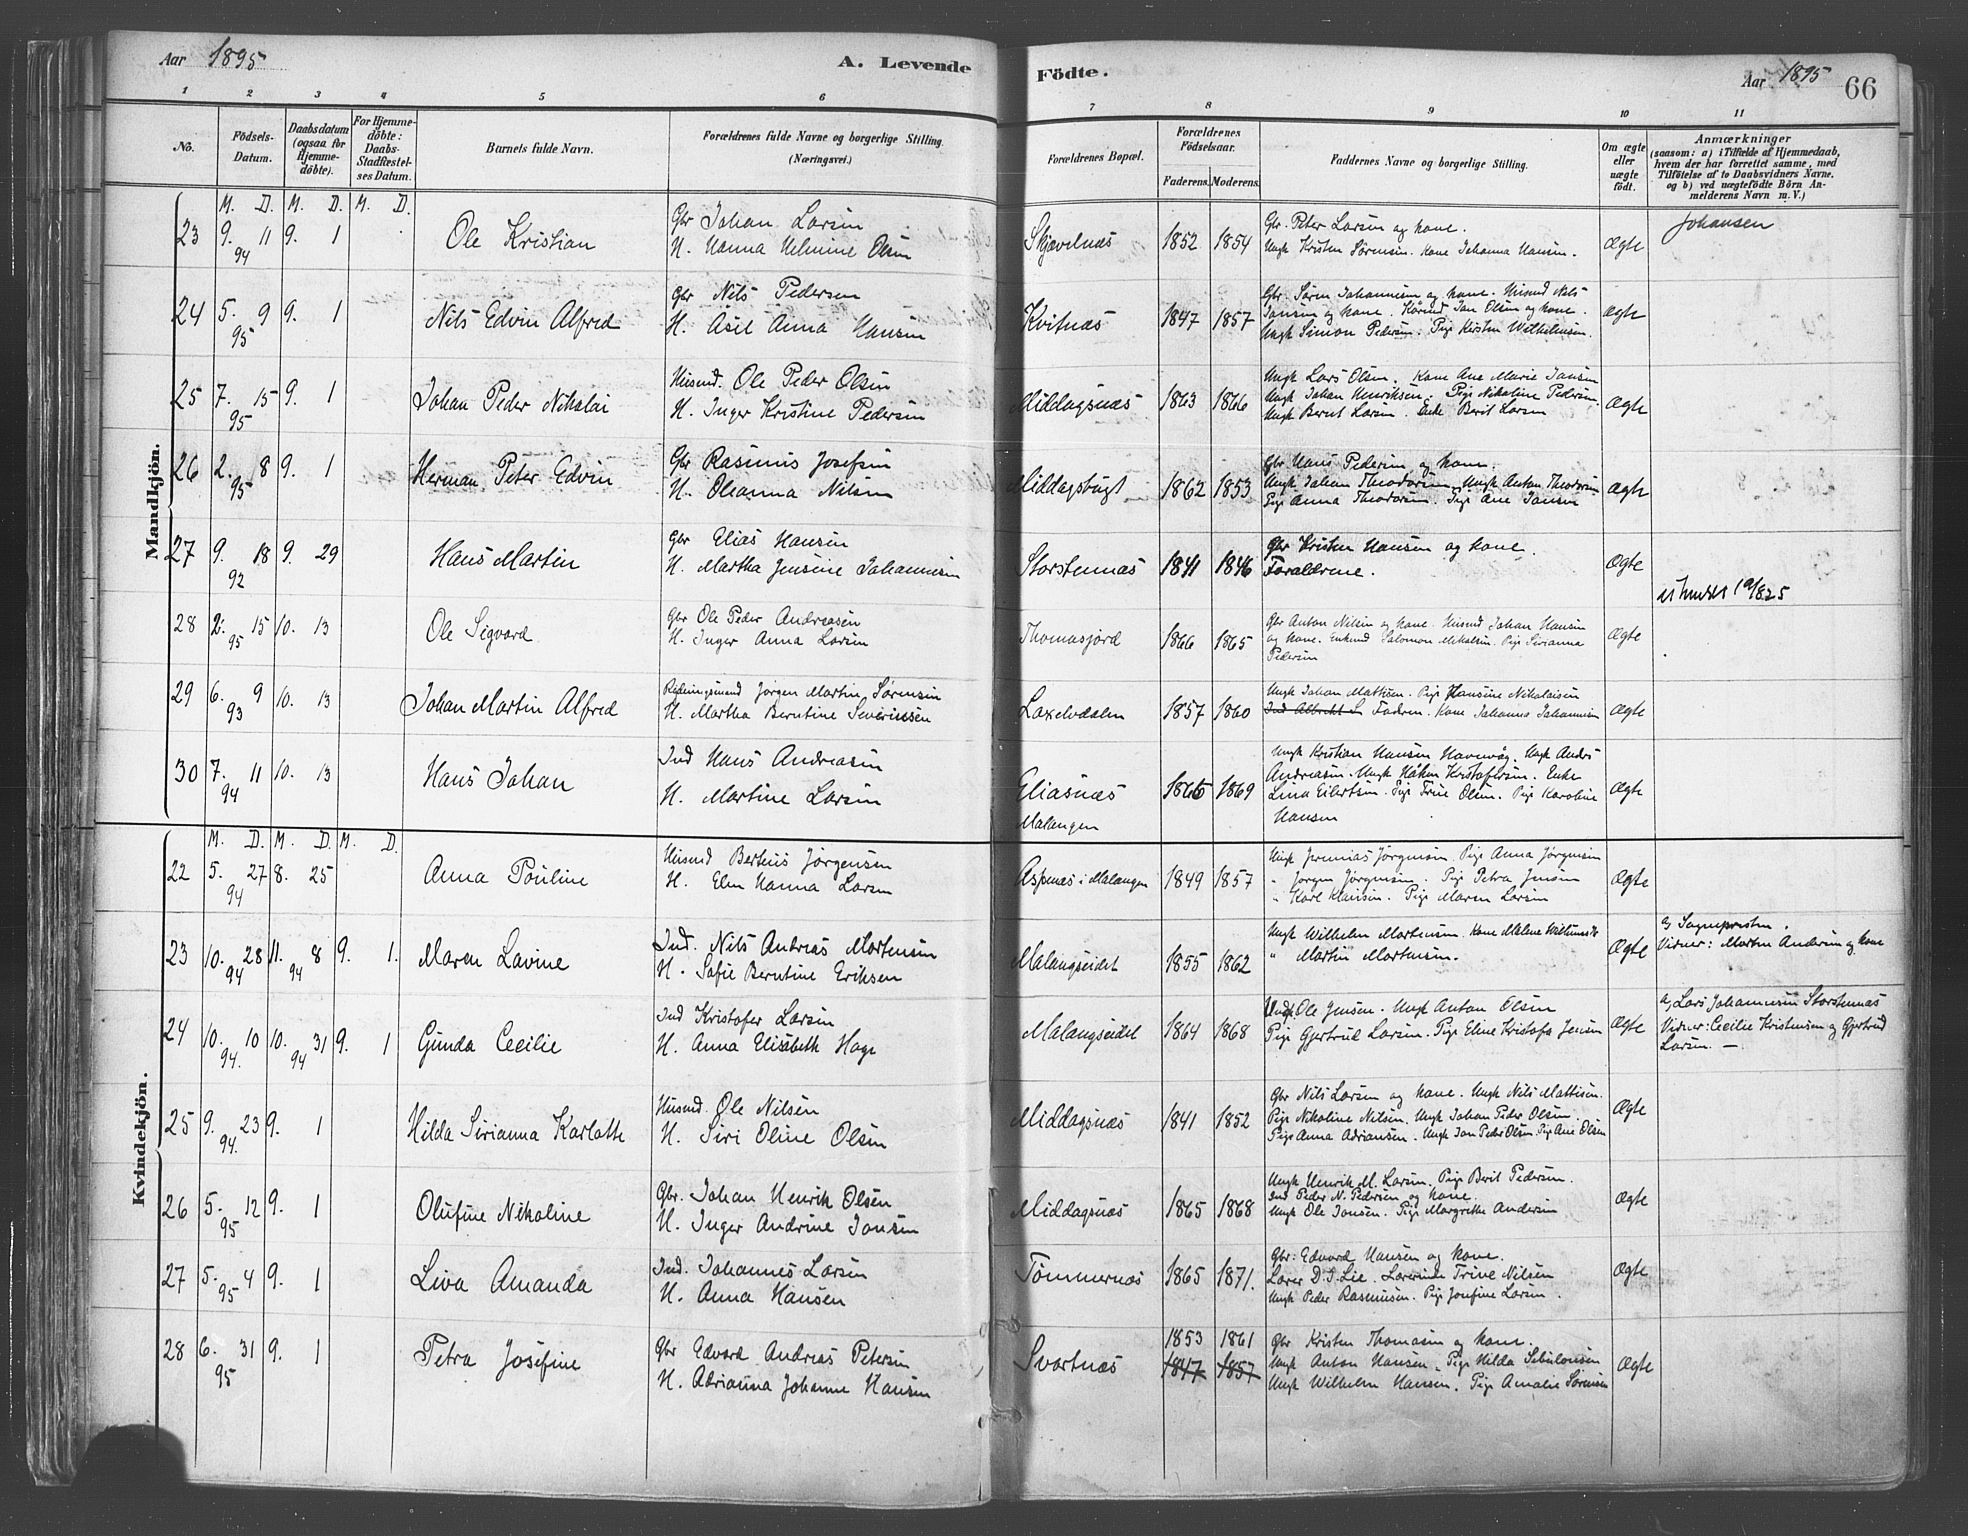 Aar 1895
A. Levende Födte.
Aar 1895
66
1 2 3 4 5 6 7 8 9 10 11
No.
Födsels-
Datum.
Daabsdatum
(ogsaa for
Hjemme-
döbte).
For Hjemme-
döbte:
Daabs-
Stadfæstel-
ses Datum.
Barnets fulde Navn.
Forældrenes fulde Navne og borgerlige Stilling.
(Næringsvei.)
Forældrenes Bopæl.
Forældrenes
Födselsaar.
Faderens. Moderens.
Faddernes Navne og borgerlige Stilling.
Om ægte
eller
uægte
födt.
Anmærkninger
(saasom: a) i Tilfælde af Hjemmedaab,
hvem der har forrettet samme, med
Tilföielse af to Daabsvidners Navne.
og b) ved uægtefödte Börn An-
melderens Navn m. V.)
Mandkjön.
M. D. M. D. M. D.
23 9. 11 94 9. 1 Ole Kristian
Gbr Johan Larsen
H. Hanna Helmine Olsen
Skjævelnæs 1852 1854
Gbr. Peter Larsen og kone.
Ungk Kristen Sørensen. Kone Johanna Hansen.
Ægte
Johansen
24 5. 9 95 9. 1 Nils Edvin Alfred
Gbr Nils Pedersen
H. Asel Anna Hansen
Kvitnæs 1847 1857
Gbr. Søren Johannesen og kone. Husmd Nils
Jansen og kone. Jan Olsen og kone.
Ungk Simon Pedersen. Pige Kirsten Wilhelmsen.
Ægte
25 7. 15 95 9. 1 Johan Peder Nikolai
Husmd. Ole Peder Olsen
H. Inger Kristine Pedersen
Middagsnæs 1863 1866
Ungk Lars Olsen. Kone Ane Marie Jansen
Ungk Johan Henriksen. Pige Nikoline Pedersen.
Ungk Bernt Larsen. Enke Berit Larsen
Ægte
26 2. 8 95 9. 1 Herman Peter Edvin
Gbr Rasmus Josefsen
H. Oleanna Nilsen
Middagsbugt 1862 1853
Gbr Hans Pedersen og kone.
Ungk Johan Theodorsen. Ungk Anton Theodorsen
Pige Anna Theodorsen. Pige Ane Jansen
Ægte
27 9. 18 92 9. 29 Hans Martin
Gbr Elias Hansen
H. Martha Jensine Johannesen
Storstennæs 1841 1846
Gbr Kristen Hansen og kone.
Forældrene.
Ægte
28 2. 15 95 10. 13 Ole Sigvard
Gbr Ole Peder Andreasen
H. Inger Anna Larsen
Thomasjord 1866 1865
Gbr Anton Nilsen og kone. Husmd Johan Hansen
og kone. Enkemd Salomon Mikalsen. Pige Sirianna
Pedersen
Ægte
29 6. 9 93 10. 13 Johan Martin Alfred
Rydningsmand Jørgen Martin Sørensen
H. Martha Berntine Severinsen
Laxelvdalen 1857 1860
Ungk Johan Mattisen. Pige Hansine Nikolaisen
Ind Albrekt S Fadren. Kone Johanna Johannesen
Ægte
30 7. 11 94 10. 13 Hans Johan
Ind Hans Andreasen
H. Martine Larsen
Eliasnæs
Malangen
1866 1869
Ungk Kristian Hansen Havnvåg. Ungk Andrs
Andreasen. Ungk Håken Kristofersen. Enke
Lina Eilertsen. Pige Trine Olsen. Pige Karoline
Hansen
Ægte
Kvindekjön.
M. D. M. D. M. D.
22 5. 27 94 8. 25 Anna Pouline
Husmd Berteus Jørgensen
H. Elen Hanna Larsen
Aspenæs i Malangen 1849 1857
Ungk Jeremias Jørgensen. Pige Anna Jørgensen
" Jørgen Jørgensen. Pige Petra Jensen
" Karl Klausen. Pige Maren Larsen
Ægte
23 10. 28 94 11. 8 94 9. 1. Maren Lavine
Ind. Nils Andreas Mortensen
H. Sofie Berntine Eriksen
Malangseidet 1855 1862
Ungk Wilhelm Mortensen. Kone Malene
" Martin Mortensen.
Ægte
a) Sognepresten.
Vidner: Morten Andersen og kone
24 10. 10 94. 10. 31 94 9. 1 Gunda Cecilie
Ind Kristofer Larsen
H. Anna Elisabeth Hage
Malangseidet 1864 1868
Ungk Ole Jensen. Ungk Anton Olsen
Pige Gjertrud Larsen. Pige Eline Kristofa Jensen
Ægte
a) Lars Johannesen Storstennæs
Vidner: Cecilie Kristensen og Gjertrud
Larsen. —
25 9. 23 94. 9. 1 Hilda Sirianna Karlotte
Husmd. Ole Nilsen
H. Siri Oline Olsen
Middagsnæs 1841 1852
Gbr Nils Larsen og kone. Ungk Nils Mattisen.
Pige Nikoline Nilsen. Ungk Johan Peder Olsen.
Pige Anna Adriansen. Ungk Jan Peder Olsen. Pige Ane Olsen
Ægte
26 5. 12 95 9. 1 Olufine Nikoline
Gbr. Johan Henrik Olsen
H. Inger Andrine Jonsen
Middagsnæs 1865 1868
Ungk Henrik M. Larsen. Pige Berit Pedersen.
Ind Peder N. Pedersen og kone.
Ungk Ole Jonsen. Pige Margrethe Andersen
Ægte
27 5. 4 95 9. 1 Liva Amanda
Ind. Johannes Larsen
H. Anna Hansen
Tømmernæs 1865 1871.
Gbr: Edvard Hansen og kone.
Lærer D. S. Lie. Lærerinde Trine Nilsen
Ungk Peder Rasmussen. Pige Josefine Larsen.
Ægte
28 6. 31 95 9. 1 Petra Josefine
Gbr Edvard Andreas Petersen
H. Adrianna Johanne Hansen
Svartnæs 1853 1861
1847 1857
Gbr Kristen Thomasen og kone.
Ungk Anton Hansen. Pige Hilda Sebulonsen
Ungk Wilhelm Hansen. Pige Amalie Sørensen
Ægte